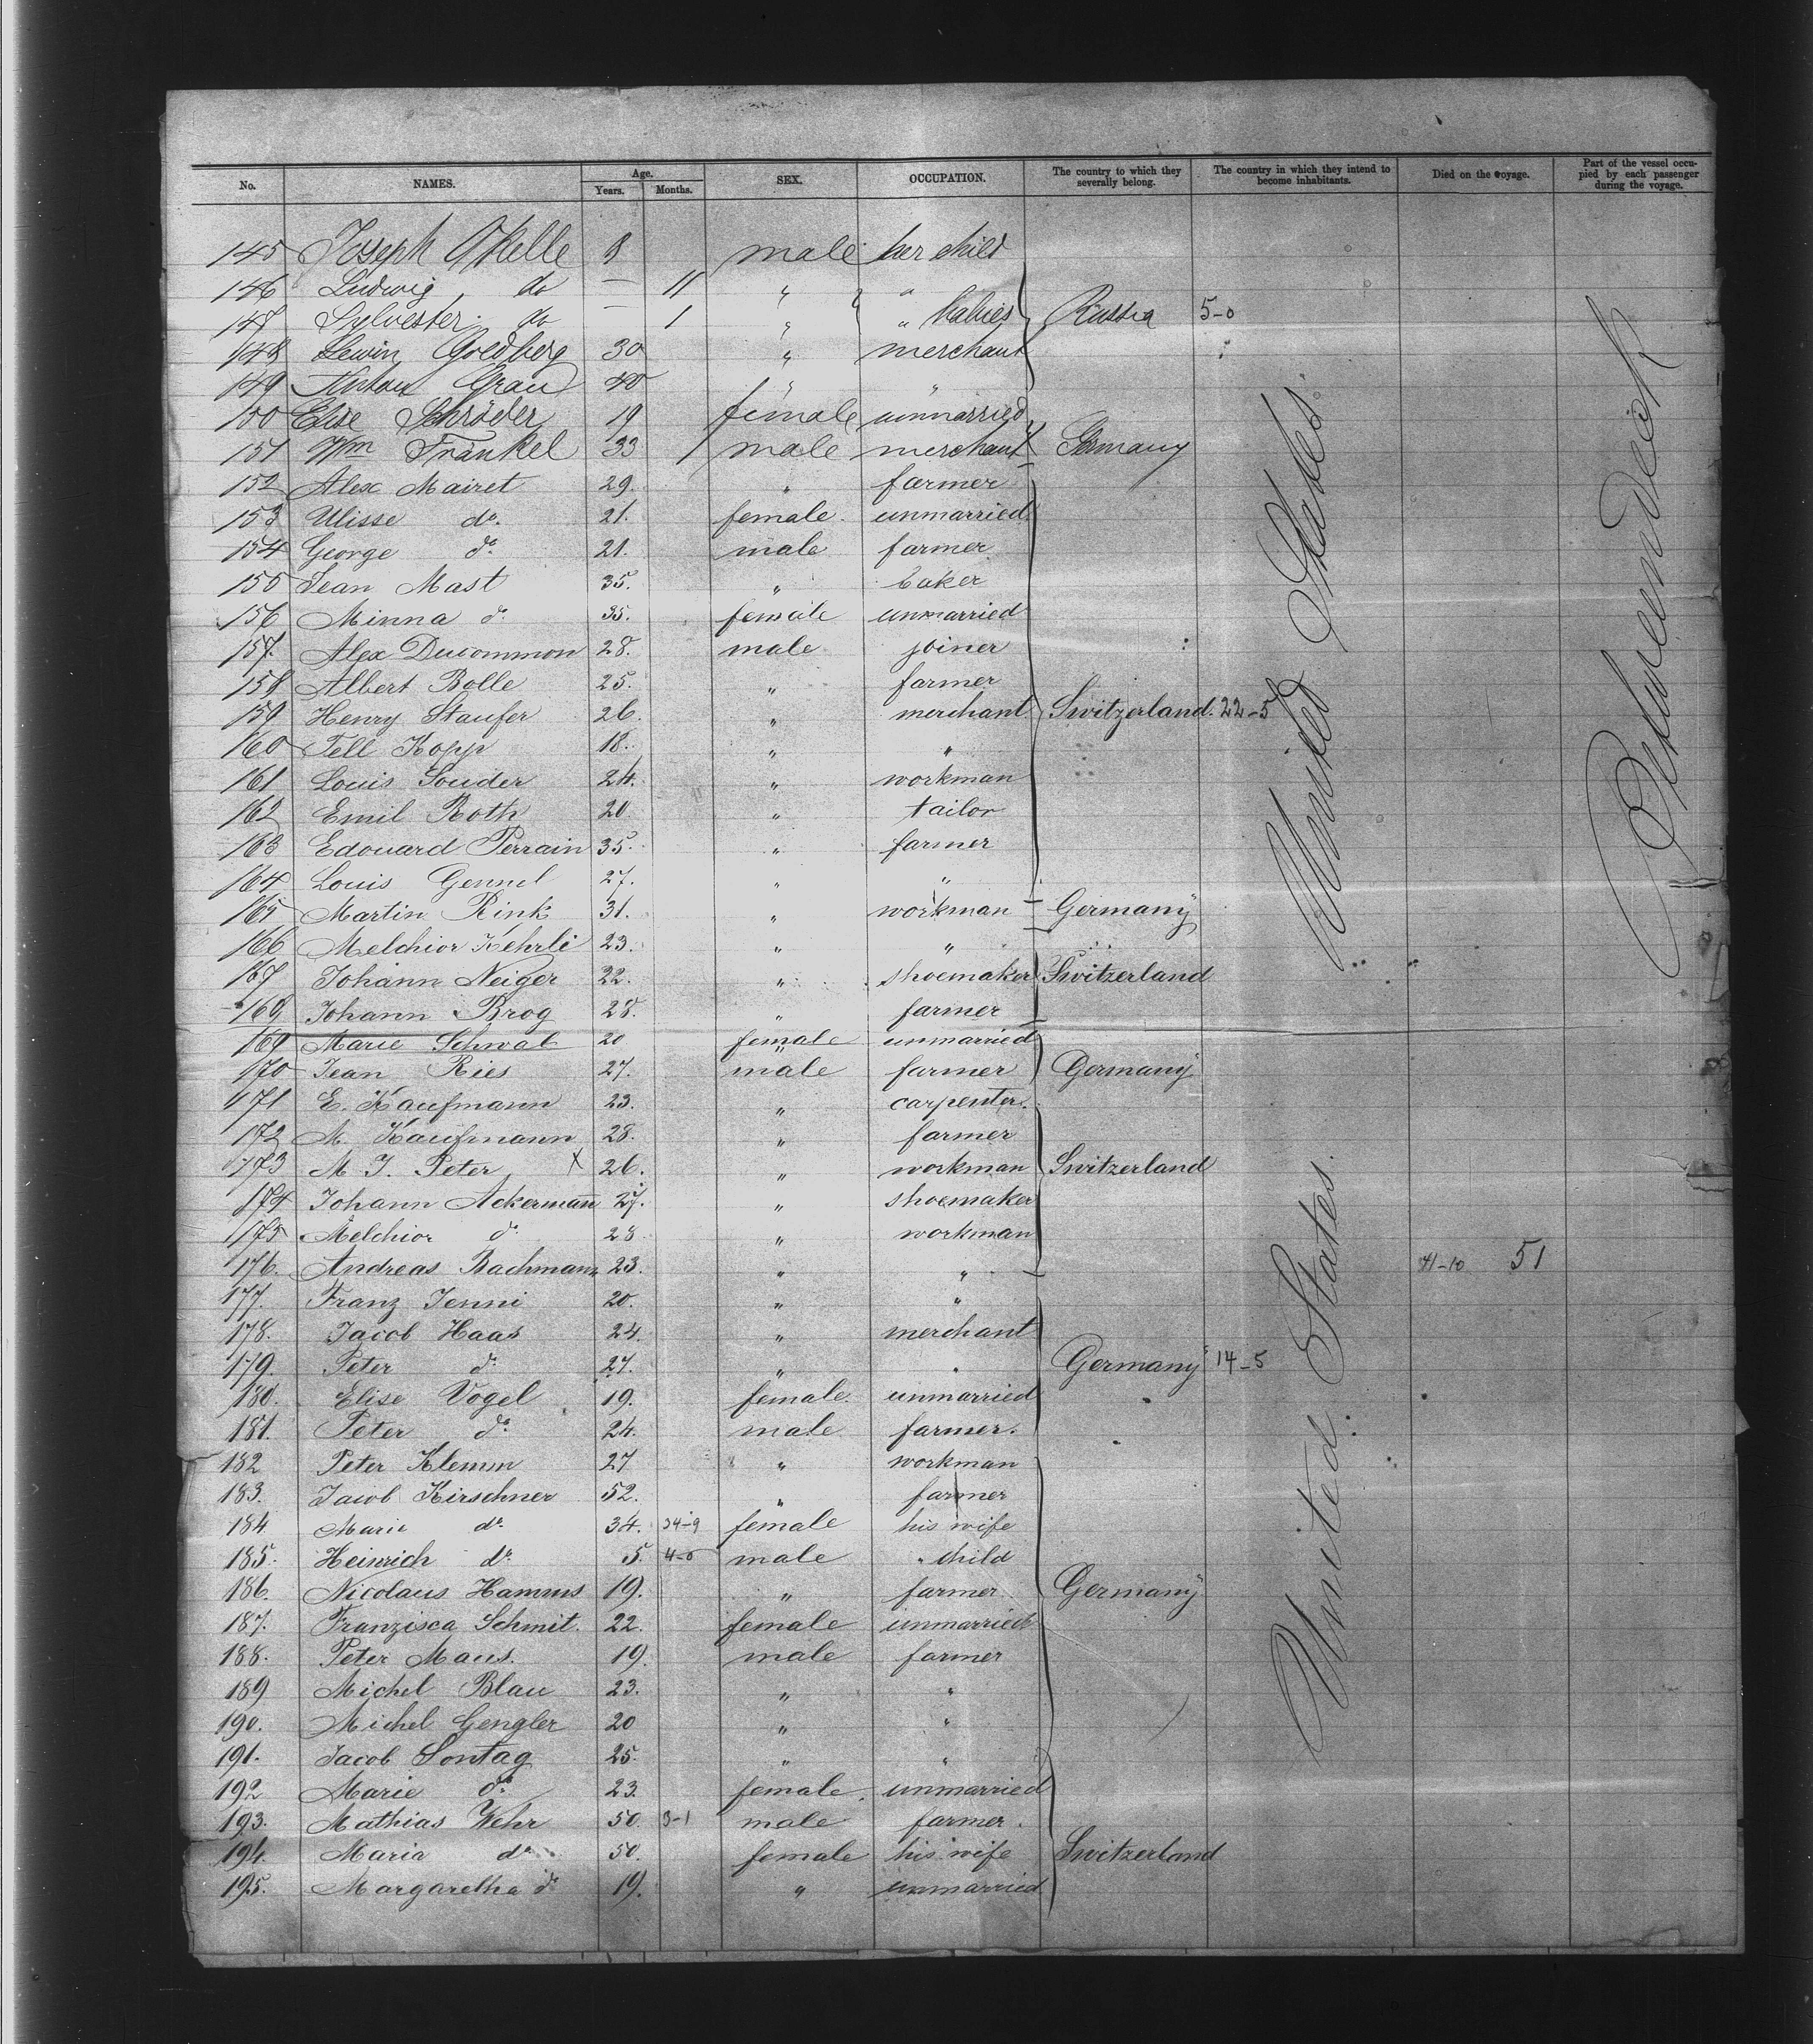 No. NAMES. Age. Years. Months. SEX. OCCUPATION. The country to which they severally belong. The country in which they intend to become inhabitants. Died on the voyage. Part of the vessel occupied by each passenger during the voyage.
145 Joseph 8 male her child
146 Ludwig do — 11 " "
147 Sylvester do — 1 " " babies Russia 5-0
148 Lewin Goldberg 30 " merchant
149 Anton Grau 40 " "
150 Elise Schröder 19 female unmarried
151 Wm Fränkel 33 male merchant Germany
152 Alex Mairet 29. " farmer
153 Ulisse do. 21. female unmarried
154 George do 21. male farmer
155 Jean Mast 35. " baker
156 Minna do 35. female unmarried
157. Alex Ducommon 28. male joiner
158 Albert Bolle 25. " farmer
159 Henry Staufer 26. " merchant Switzerland. 22-5
160 Tell Kopp 18. " "
161 Louis Souder 24. " workman
162 Emil Roth 20. " tailor
163 Edouard Perrain 35. " farmer
164 Louis Gennel 27. " "
165 Martin Rink 31. " workman Germany
166 Melchior Kehrli 23. " "
167 Johann Neiger 22. " shoemaker Switzerland
169 Johann Brog 28. " farmer
169 Marie Schwab 20 female unmarried
170 Jean Ries 27. male farmer Germany
171 E. Kaufmann 23. " carpenter.
172 M. Kaufmann 28. " farmer
173 M J. Peter X 26. " workman Switzerland
174 Johann Ackermann 27. " shoemaker
175 Melchior do 28 " workman
176. Andreas Bachmann 23. " " 41-10 51
177. Franz Jenni 20. " "
178. Jacob Haas 24. " merchant
179. Peter do 27. " " Germany 14-5
180. Elise Vogel 19. female. unmarried
181. Peter do 24. male farmer.
182 Peter Klemm 27 " workman
183. Jacob Kirschner 52. " farmer
184. Marie do. 34. 34-9 female his wife
185. Heinrich do. 5. 4-0 male " child
186. Nicolaus Hamms 19. " farmer Germany
187. Franzisca Schmit. 22. female unmarried
188. Peter Maus. 19. male farmer
189 Michel Blau 23. " "
190. Michel Gengler 20 " "
191. Jacob Sontag 25. " "
192 Marie do 23. female. unmarried
193. Mathias Wehr 50. 3-1 male farmer.
194. Maria do 50. female his wife Switzerland
195. Margaretha do 19. " unmarried
United States.
United States.
Between deck